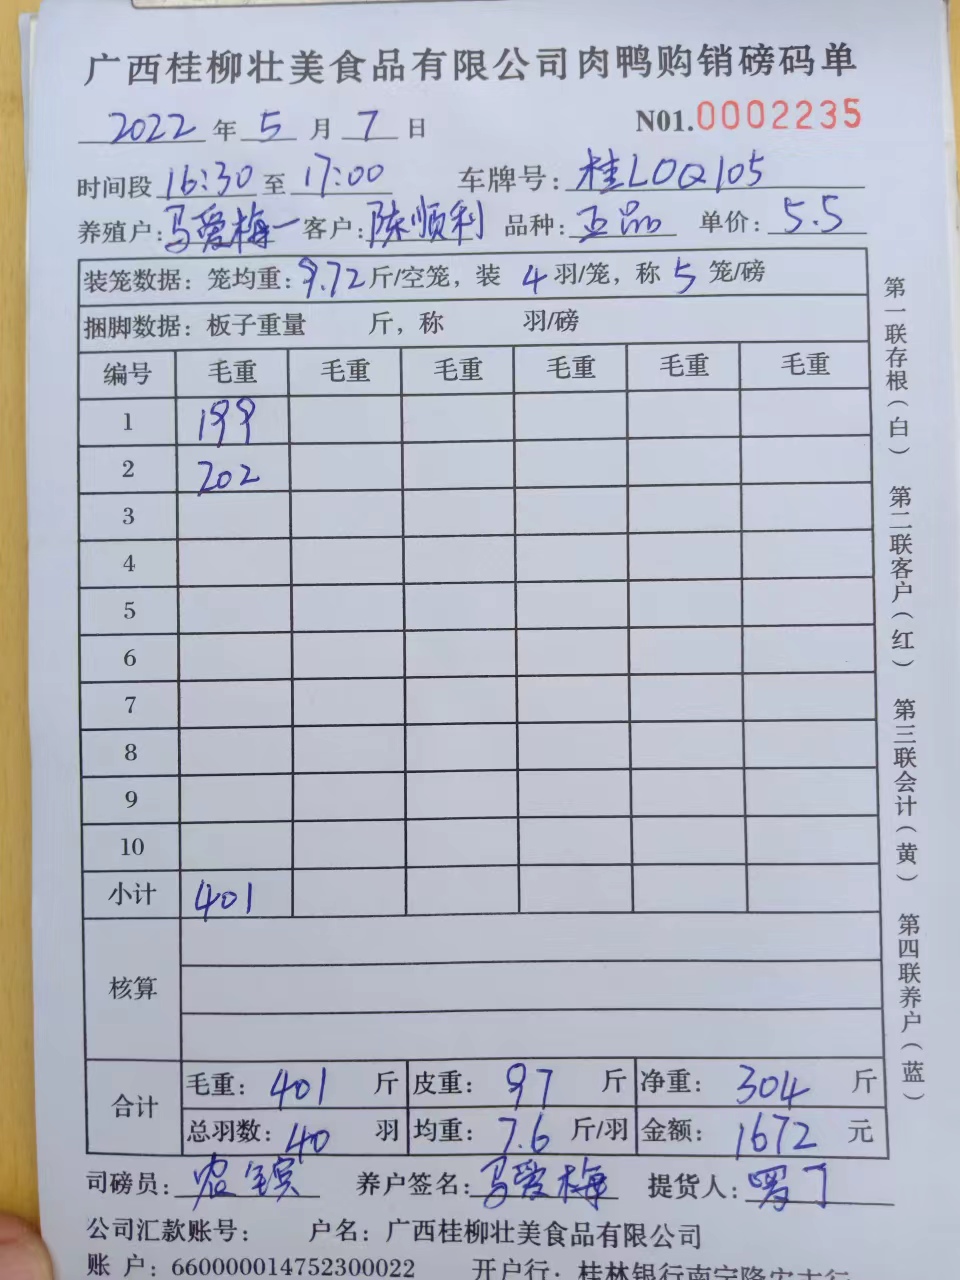 广西桂柳壮美食品有限公司肉鸭购销磅码单
2022 年 5 月 7 日 N01.0002235
时间段 16:30 至 17:00 车牌号: 桂L0Q105
养殖户: 马爱梅一 客户: 陈顺利 品种: 正品 单价: 5.5
装笼数据: 笼均重: 9.72 斤/空笼, 装 4 羽/笼, 称 5 笼/磅
捆脚数据: 板子重量 斤, 称 羽/磅
编号 毛重 毛重 毛重 毛重 毛重 毛重
1 199
2 202
3
4
5
6
7
8
9
10
小计 401
核算
合计 毛重: 401 斤 皮重: 97 斤 净重: 304 斤
总羽数: 40 羽 均重: 7.6 斤/羽 金额: 1672 元
司磅员: 养户签名: 马爱梅 提货人:
公司汇款账号: 户名: 广西桂柳壮美食品有限公司
账 户: 660000014752300022 开户行: 桂林银行南宁隆安支行
第一联存根(白) 第二联客户(红) 第三联会计(黄) 第四联养户(蓝)